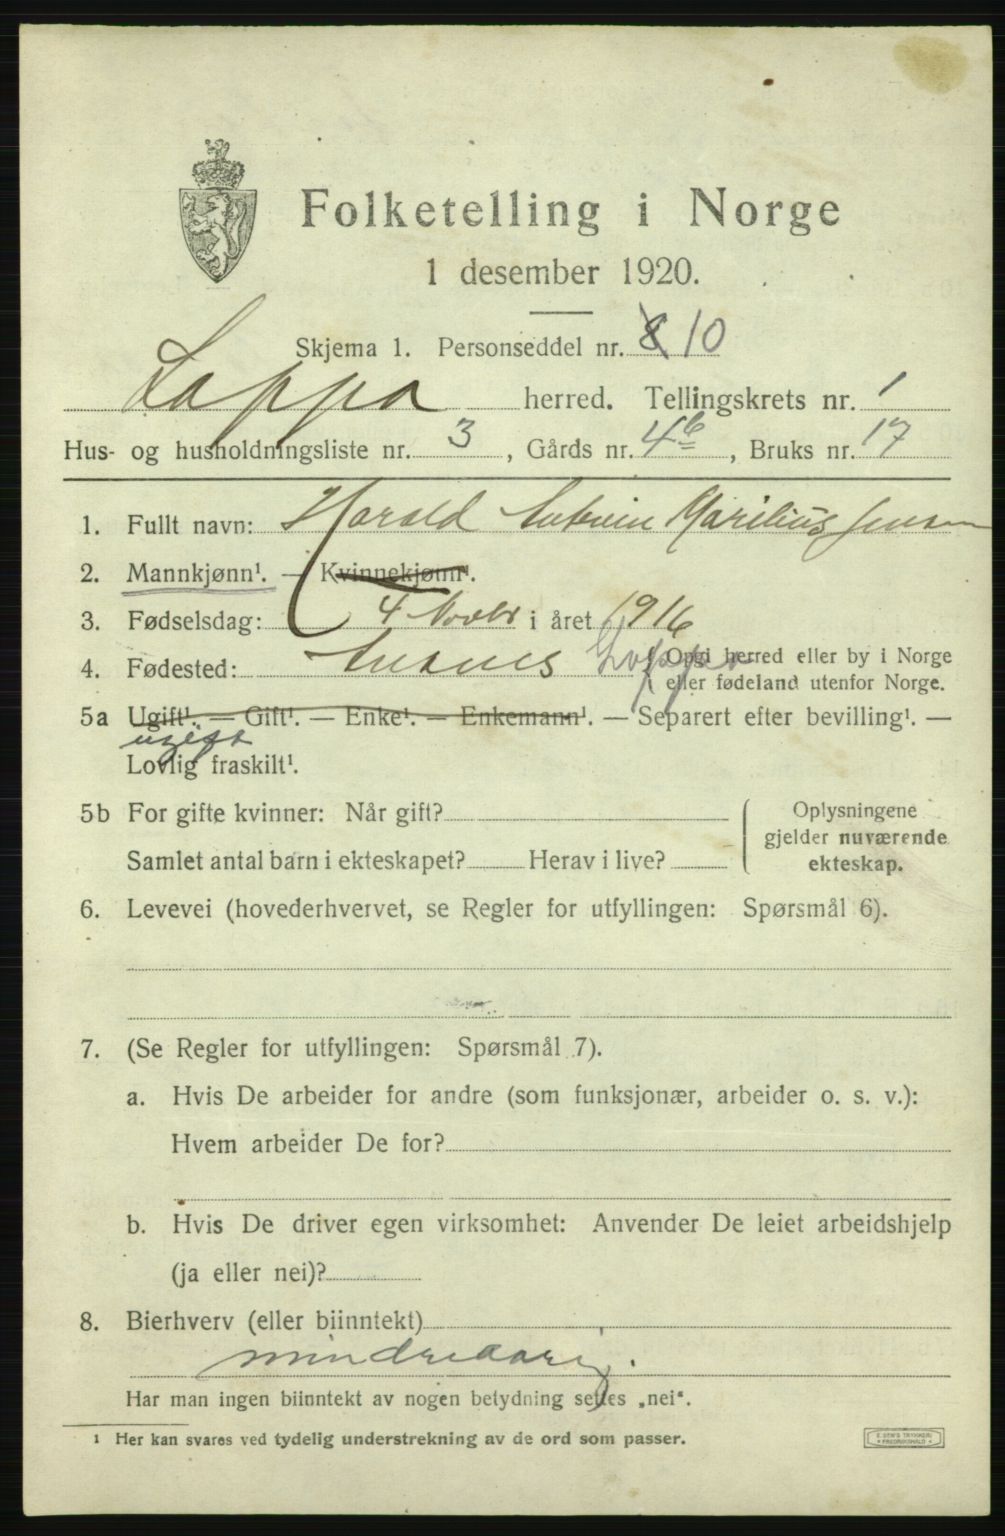 Folketelling i Norge
1 desember 1920.
Skjema 1. Personseddel nr. 8 10
Loppa herred. Tellingskrets nr. 1
Hus- og husholdningsliste nr. 3, Gårds nr. 4b, Bruks nr. 17
1. Fullt navn: Harald Marilius Jensen
2. Mannkjønn¹. — Kvinnekjønn¹.
3. Fødselsdag: 4 Novbr i året 1916
4. Fødested: Loppa Opgi herred eller by i Norge
eller fødeland utenfor Norge.
5a Ugift¹. — Gift¹. — Enke¹. — Enkemann¹. — Separert efter bevilling¹. —
ugift
Lovlig fraskilt¹.
5b For gifte kvinner: Når gift?
Samlet antal barn i ekteskapet? Herav i live?
Oplysningene
gjelder nuværende
ekteskap.
6. Levevei (hovederhvervet, se Regler for utfyllingen: Spørsmål 6).
7. (Se Regler for utfyllingen: Spørsmål 7).
a. Hvis De arbeider for andre (som funksjonær, arbeider o. s. v.):
Hvem arbeider De for?
b. Hvis De driver egen virksomhet: Anvender De leiet arbeidshjelp
(ja eller nei)?
8. Bierhverv (eller biinntekt)
mindreaarig.
Har man ingen biinntekt av nogen betydning settes „nei“.
¹ Her kan svares ved tydelig understrekning av de ord som passer.